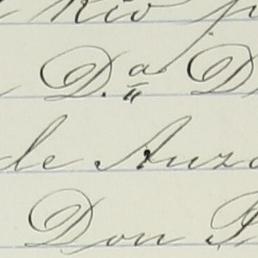 Rio
D.ª D
de Anzo
Don